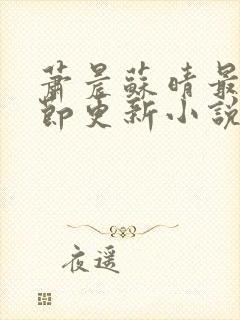 萧晨蘇晴最
節更新小說
夜遥